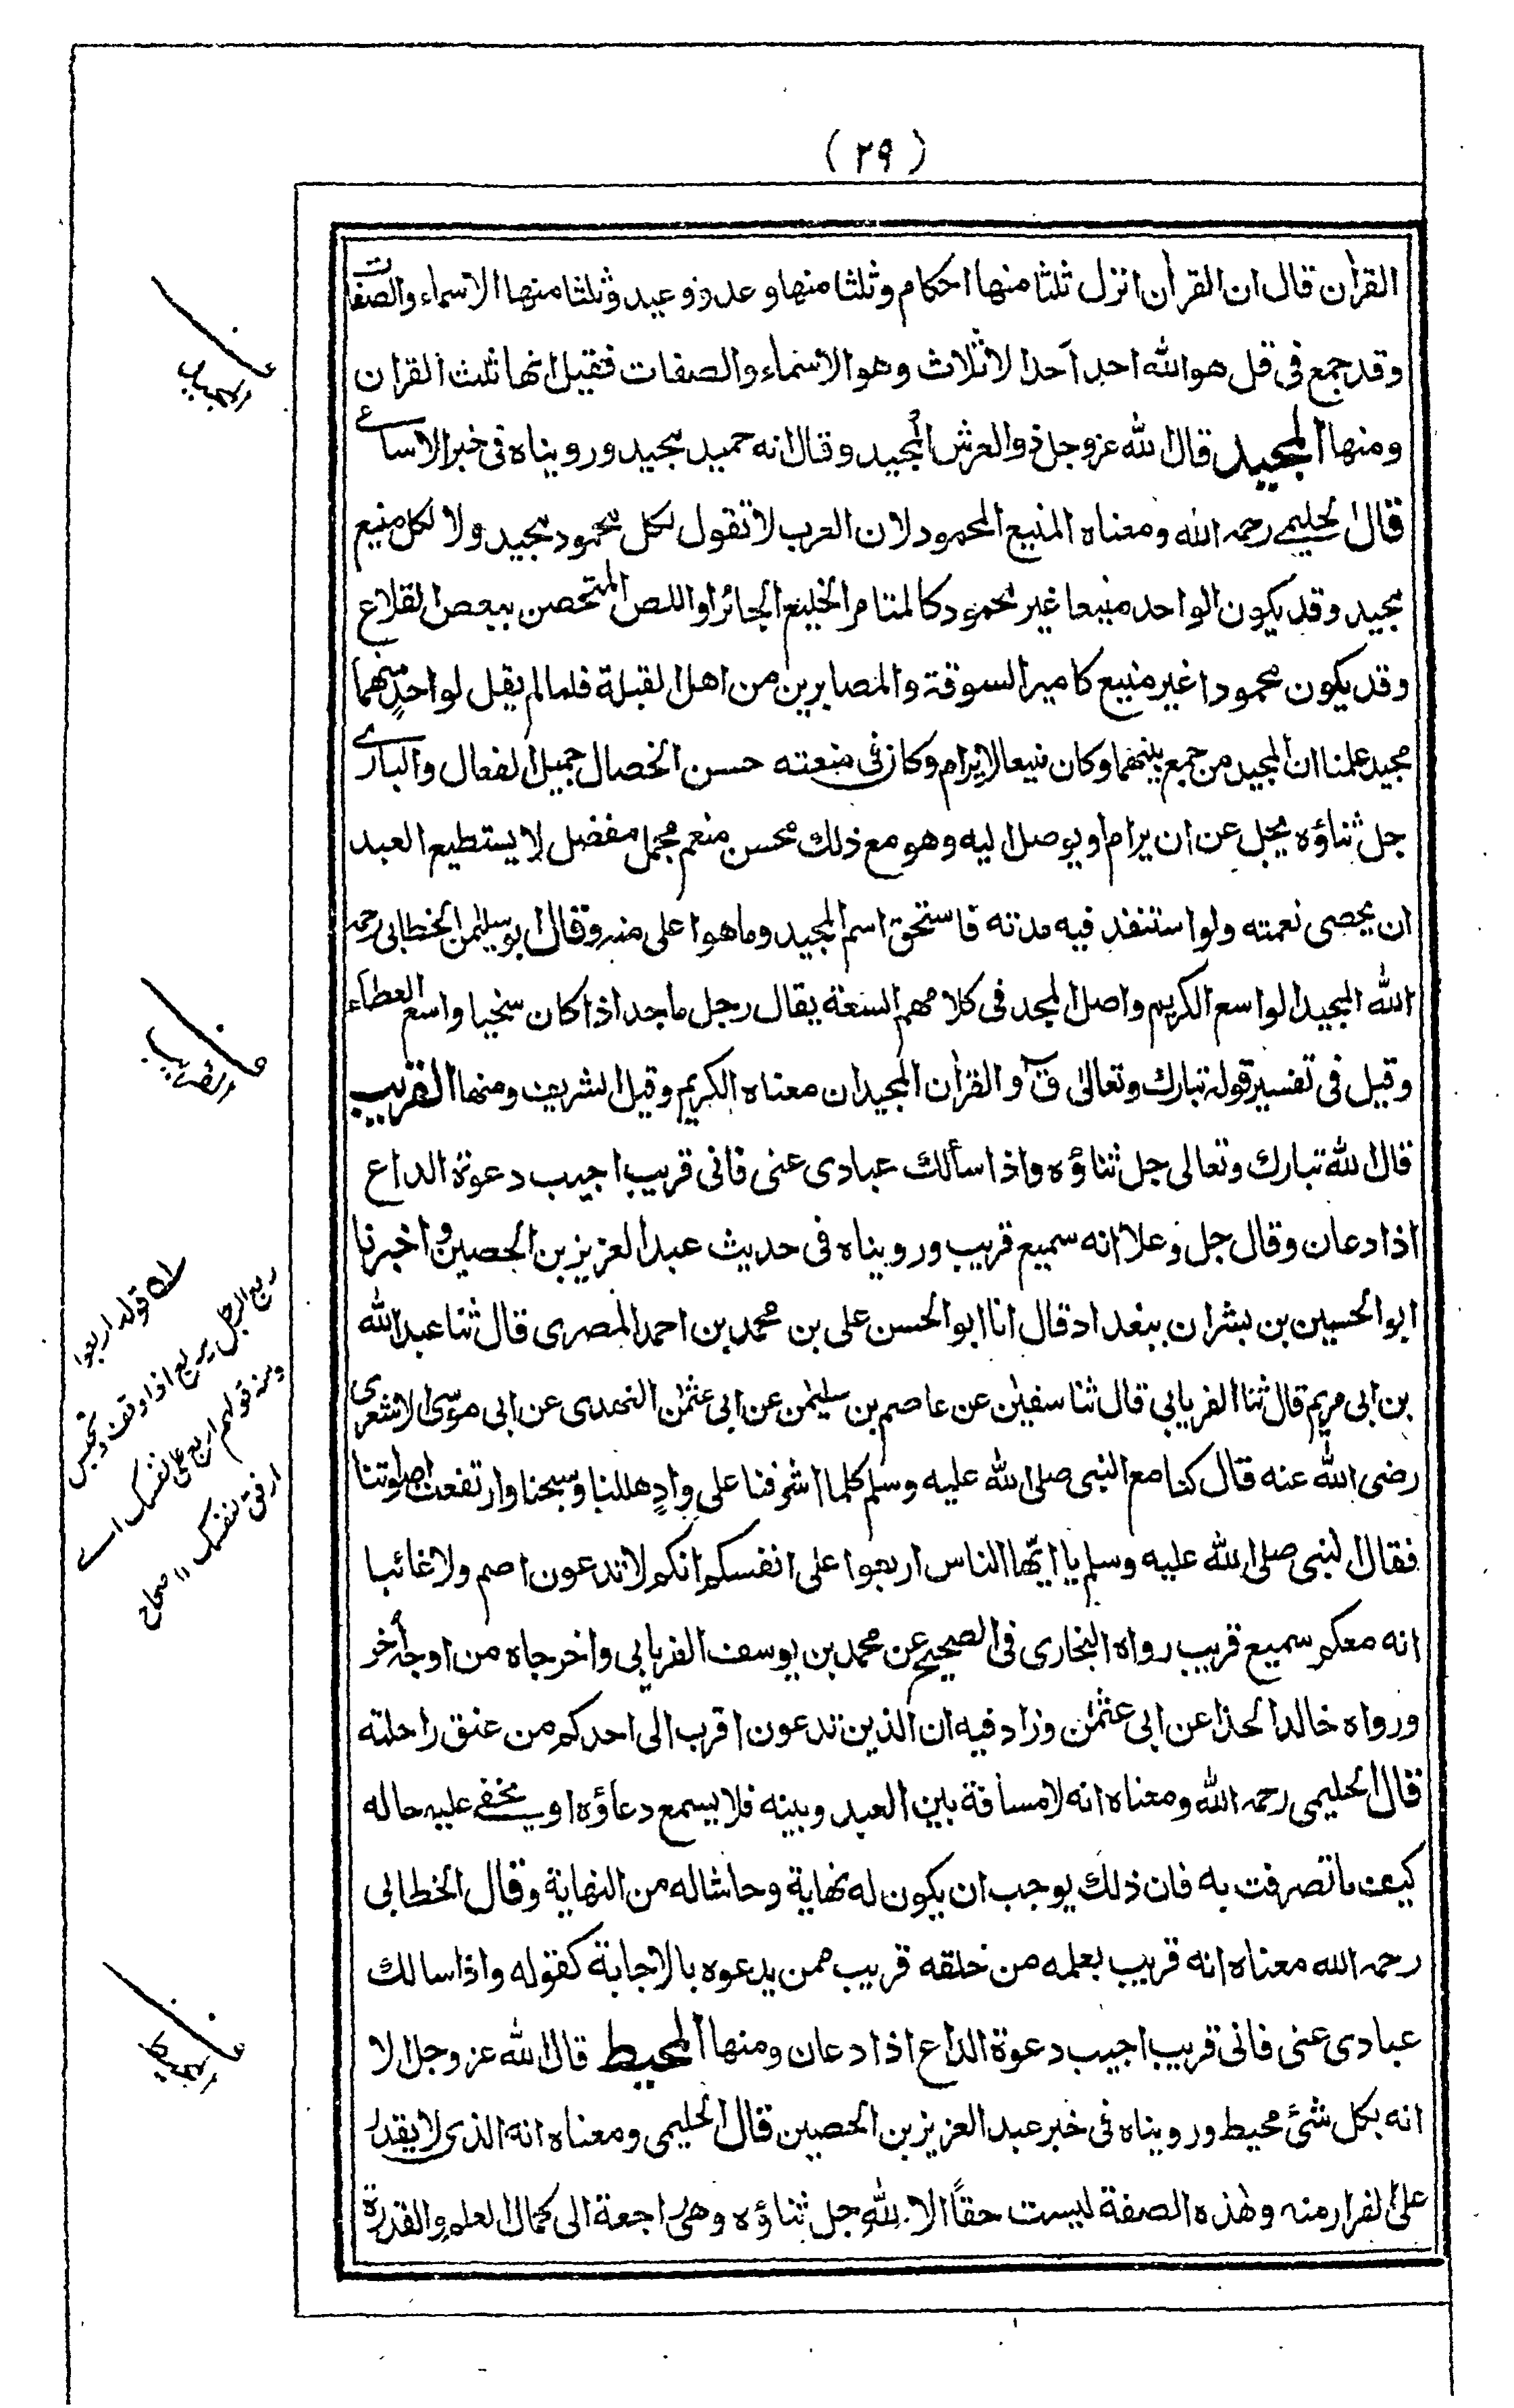 ( ٢٩ )
القرأن قال ان القرأن انزل ثلثا منها احكام وثلثا منها وعد ووعيد وثلثا منها الاسماء والصفات
وقد جمع فى قل هو الله احد احد الاثلاث وهو الاسماء والصفات فقيل انها ثلث القرأن
ومنها المجيد قال الله عزوجل ذو العرش المجيد وقال انه حميد مجيد ورويناه فى خبر الاسامى
قال الحليمى رحمه الله ومعناه المنيع المحمود لان العرب لا تقول لكل محمود مجيد ولا لكل منيع
مجيد وقد يكون الواحد منيعا غير محمود كالمتامر الخليع الجائر او اللص المتحصن ببعض القلاع
وقد يكون محمودا غير منيع كامير السوقة والمصابرين من اهل القبلة فلما لم يقل لواحدٍ منهما
مجيد علمنا ان المجيد من جمع بينهما وكان منيعا لا يرام وكان فى منعته حسن الخصال جميل الفعال والبارى
جل ثناؤه يجل عن ان يرام او يوصل اليه وهو مع ذلك محسن منعم مجمل مفضل لا يستطيع العبد
ان يحصى نعمته ولو استنفد فيه مدته فاستحق اسم المجيد وما هو اعلى منه وقال ابو سليمٰن الخطابى رحمه
الله المجيد الواسع الكريم واصل المجد فى كلامهم السعة يقال رجل ماجد اذا كان سخيا واسع العطاء
وقيل فى تفسير قوله تبارك وتعالىٰ قٓ والقرأن المجيد ان معناه الكريم وقيل الشريف ومنها القريب
قال الله تبارك وتعالى جل ثناؤه واذا سألك عبادى عنى فانى قريب اجيب دعوة الداع
اذا دعان وقال جل وعلا انه سميع قريب ورويناه فى حديث عبد العزيز بن الحصين واخبرنا
ابو الحسين بن بشران ببغداد قال انا ابو الحسن على بن محمد بن احمد المصرى قال ثنا عبد الله
بن ابى مريم قال ثنا الفريابي قال ثنا سفيٰن عن عاصم بن سليمٰن عن ابى عثمٰن النهدى عن ابى موسى الاشعرى
رضى الله عنه قال كنا مع النبى صلى الله عليه وسلم كلما اشرفنا على وادٍ هللنا وسبحنا وارتفعت اصواتنا
فقال النبى صلى الله عليه وسلم يا ايّها الناس اربعوا على انفسكم انكم لا تدعون اصم ولا غائبا
انه معكم سميع قريب رواه البخارى فى الصحيح عن محمد بن يوسف الفريابي واخرجاه من اوجه أخر
ورواه خالد الحذا عن ابى عثمٰن وزاد فيه ان الذين تدعون اقرب الى احدكم من عنق راحلته
قال الحليمى رحمه الله ومعناه انه لا مسافة بين العبد وبينه فلا يسمع دعاؤه او يخفى عليه حاله
كيف ما تصرفت به فان ذلك يوجب ان يكون له نهاية وحاشا له من النهاية وقال الخطابى
رحمه الله معناه انه قريب بعلمه من خلقه قريب ممن يدعوه بالاجابة كقوله واذا سالك
عبادى عنى فانى قريب اجيب دعوة الداع اذا دعان ومنها المحيط قال الله عز وجل الا
انه بكل شئ محيط ورويناه فى خبر عبد العزيز بن الحصين قال الحليمى ومعناه انه الذى لا يقدر
على الفرار منه وهٰذه الصفة ليست حقًا الا لله جل ثناؤه وهى راجعة الى كمال العلم والقدرة
المجيد
القريب
لـه قوله اربعوا
ربع الرجل يربع اذا وقف وتحبس
ومنه قولهم اربع على نفسك اى
ارفق بنفسك ١٢ صحاح
المحيط